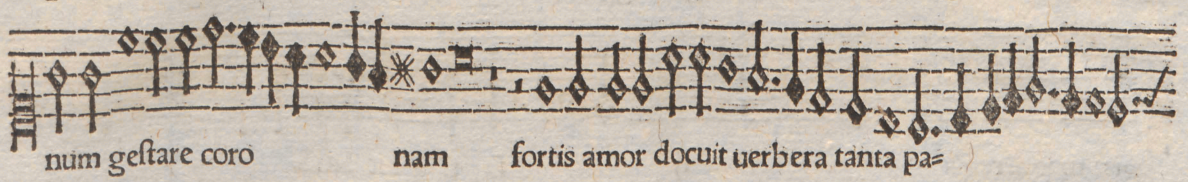 num geſtare coro nam fortis amor docuit uerbera tanta pa=